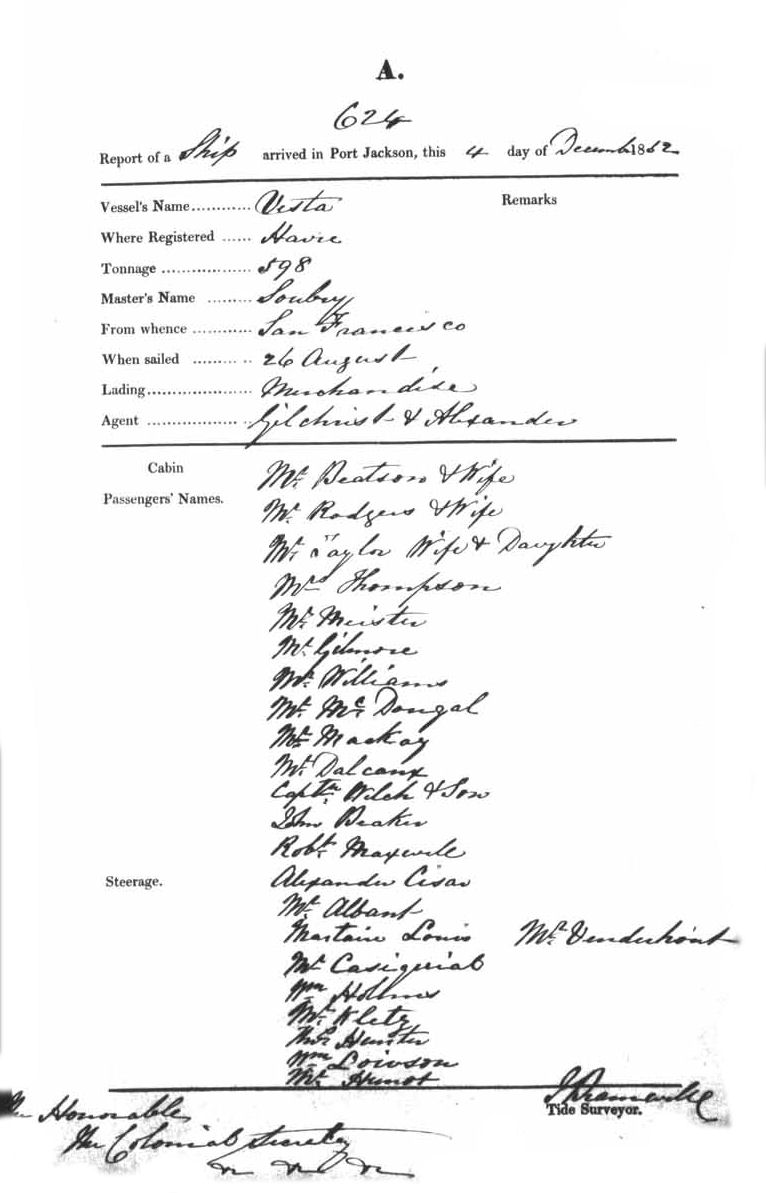 A.
624
Report of a Ship arrived in Port Jackson, this 4 day of Decemb 1852
Vessel's Name............ Vesta Remarks
Where Registered ...... Havre
Tonnage .................. 598
Master's Name ......... Soubry
From whence ............ San Francisco
When sailed ............ 26 August
Lading..................... Merchandise
Agent ..................... Gilchrist & Alexander
Cabin
Passengers' Names.
Mr. Beatson & Wife
Mr. Rodgers & Wife
Mr. Taylor Wife & Daughter
Mrs Thompson
Mr. Meister
Mr. Gilmore
Mr. Williams
Mr. Mc Dougal
Mr. Mackay
Mr. Dalcaux
Captn. Welch & Son
John Beaker
Robt. Maxwele
Steerage. Alexander Cisar
Mr. Albant
Martain Louis Mr. Venderhoint
Mr. Casigerial
Wm Hollms
Mr. Kletz
Hunter
Wm Loivson
Mr. Hunot
Tide Surveyor.
The Honorable
The Colonial Secretary